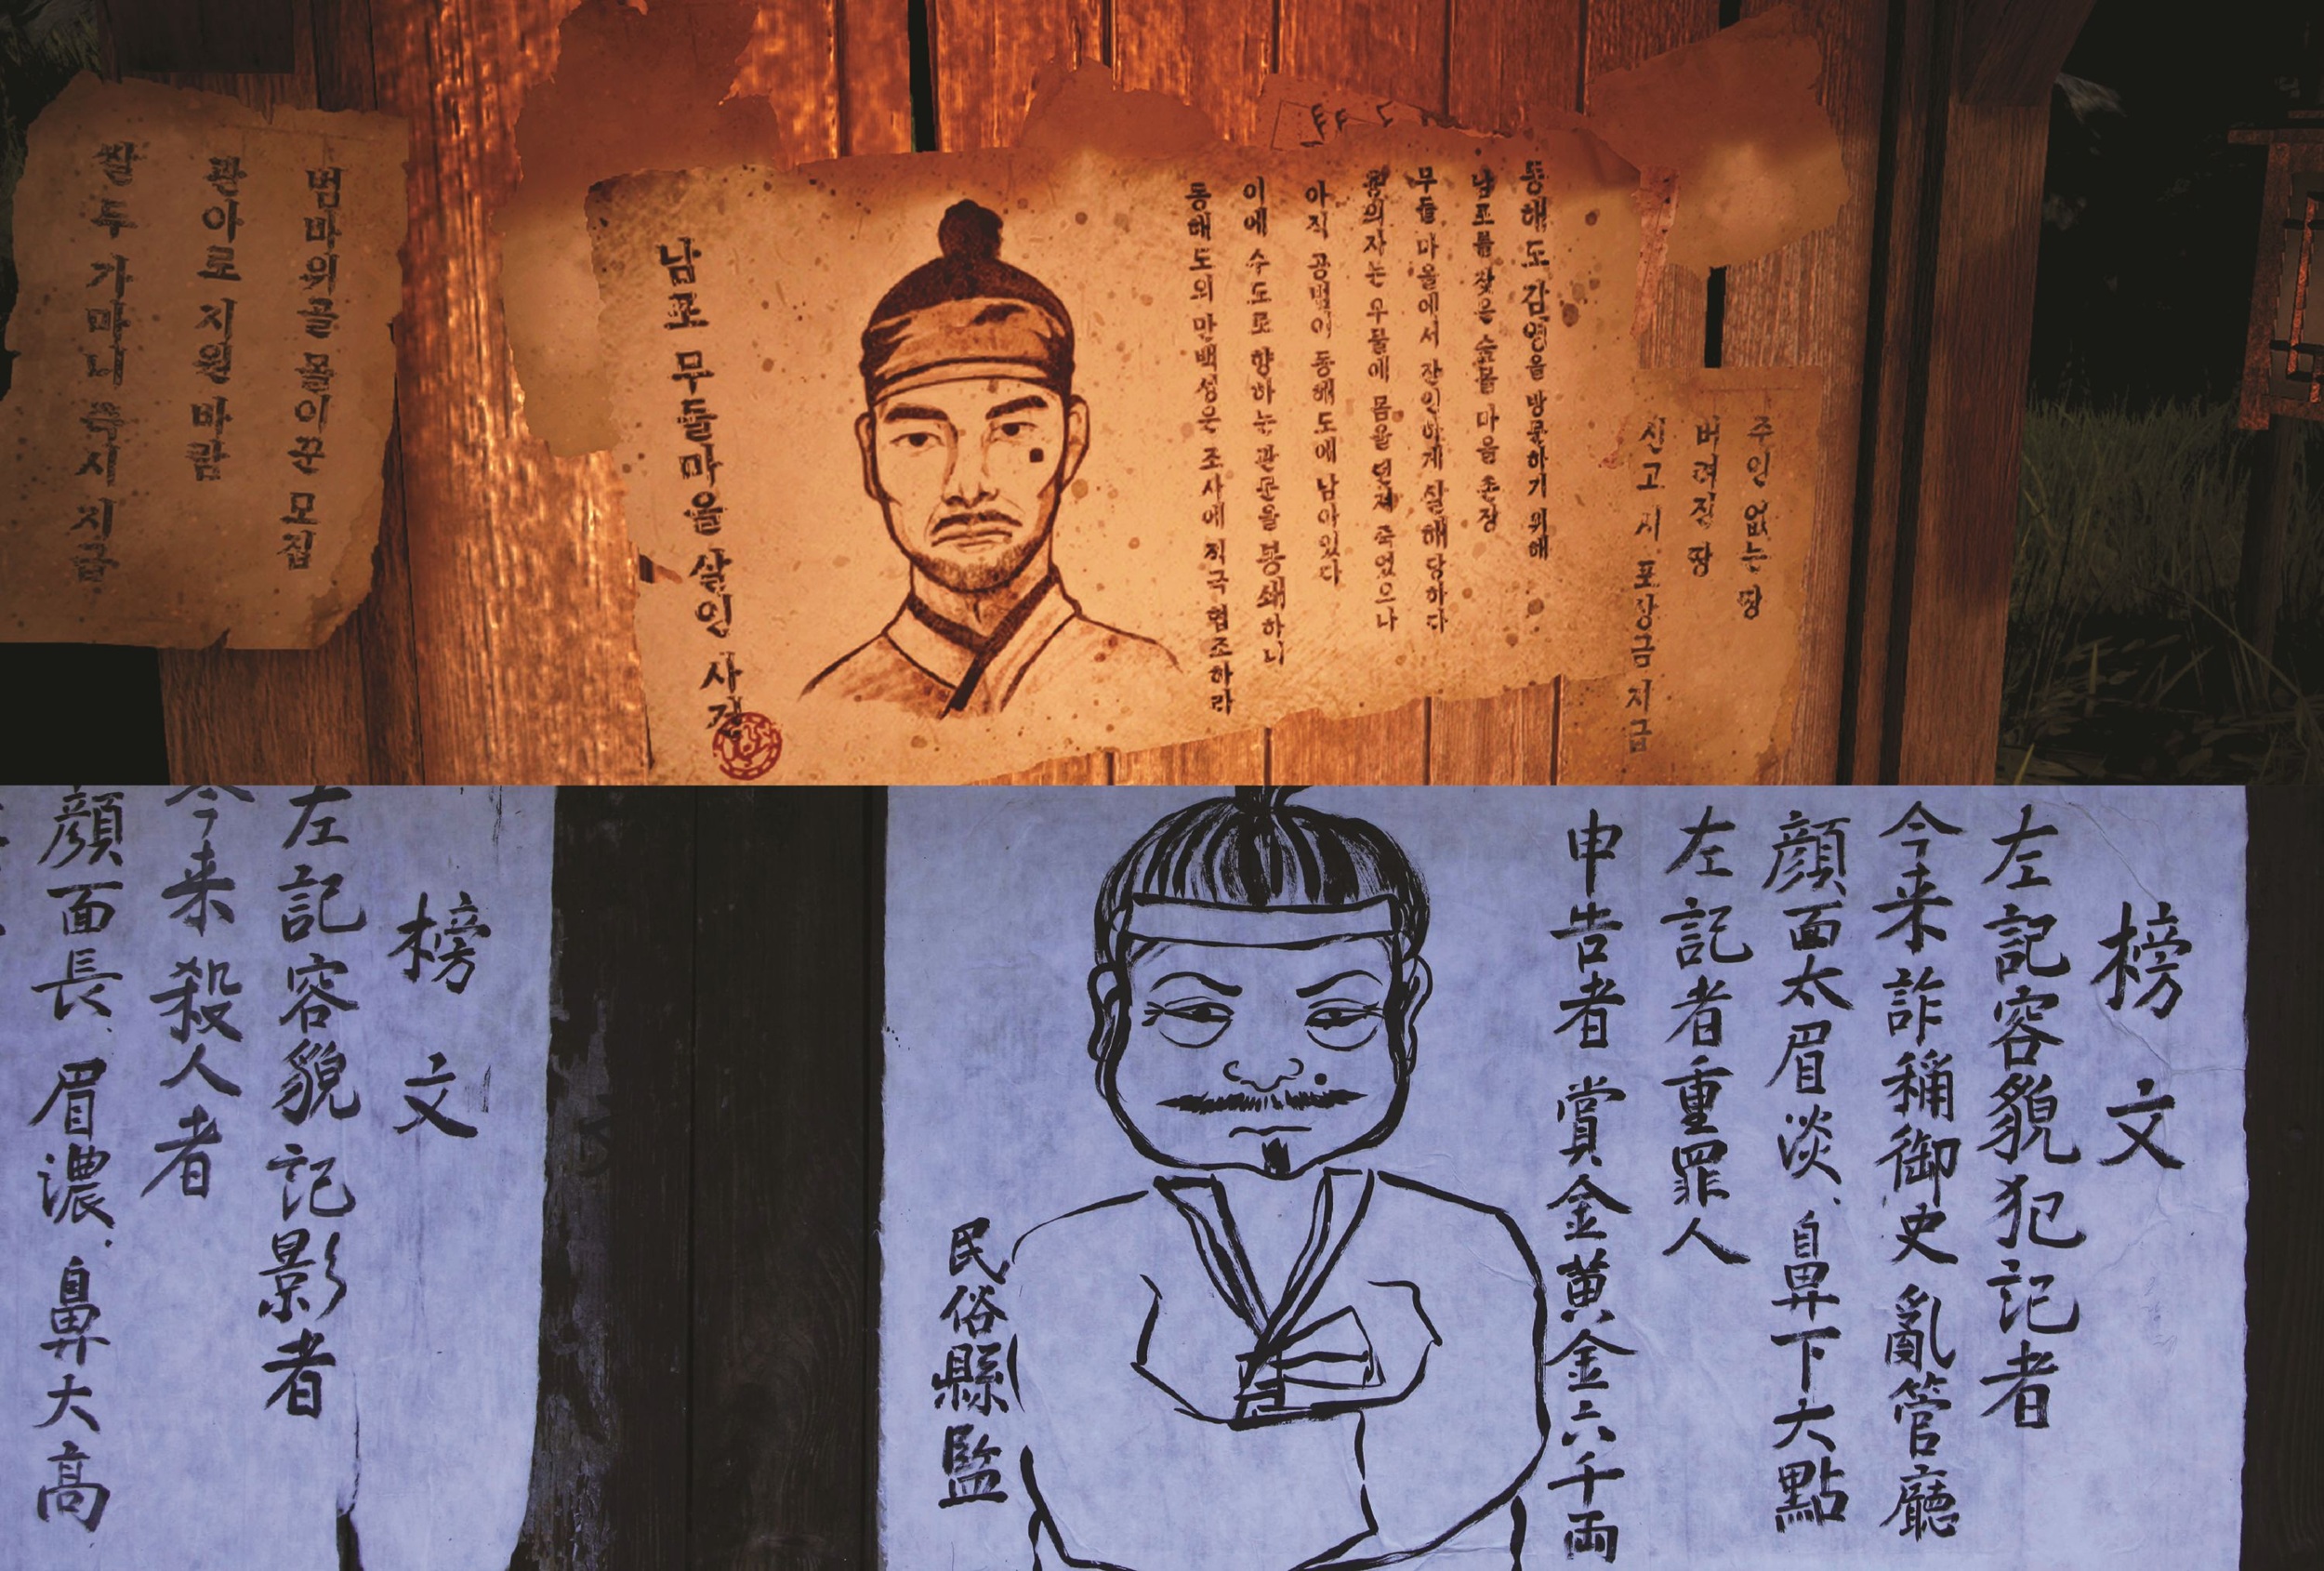 범바위골 몰이꾼 모집
관아로 지원 바람
쌀 두 가마니 즉시 지급
동해도 감영을 방문하기 위해
남포를 찾은 숲몰 마을 촌장
무들 마을에서 잔인하게 살해당하다
용의자는 우물에 몸을 던져 죽었으나
아직 공범이 동해도에 남아있다
이에 수도로 향하는 관문을 봉쇄하니
동해도의 만백성은 조사에 적극 협조하라
남포 무들마을 살인 사건
주인 없는 땅
버려진 땅
신고 시 포상금 지급
榜文
左記容貌記影者
今来殺人者
顔面長、眉濃、鼻大高
榜文
左記容貌犯記者
今来詐稱御史亂管廳
顔面太眉淡、鼻下大點
左記者重罪人
申告者賞金黄金六千両
民俗縣監